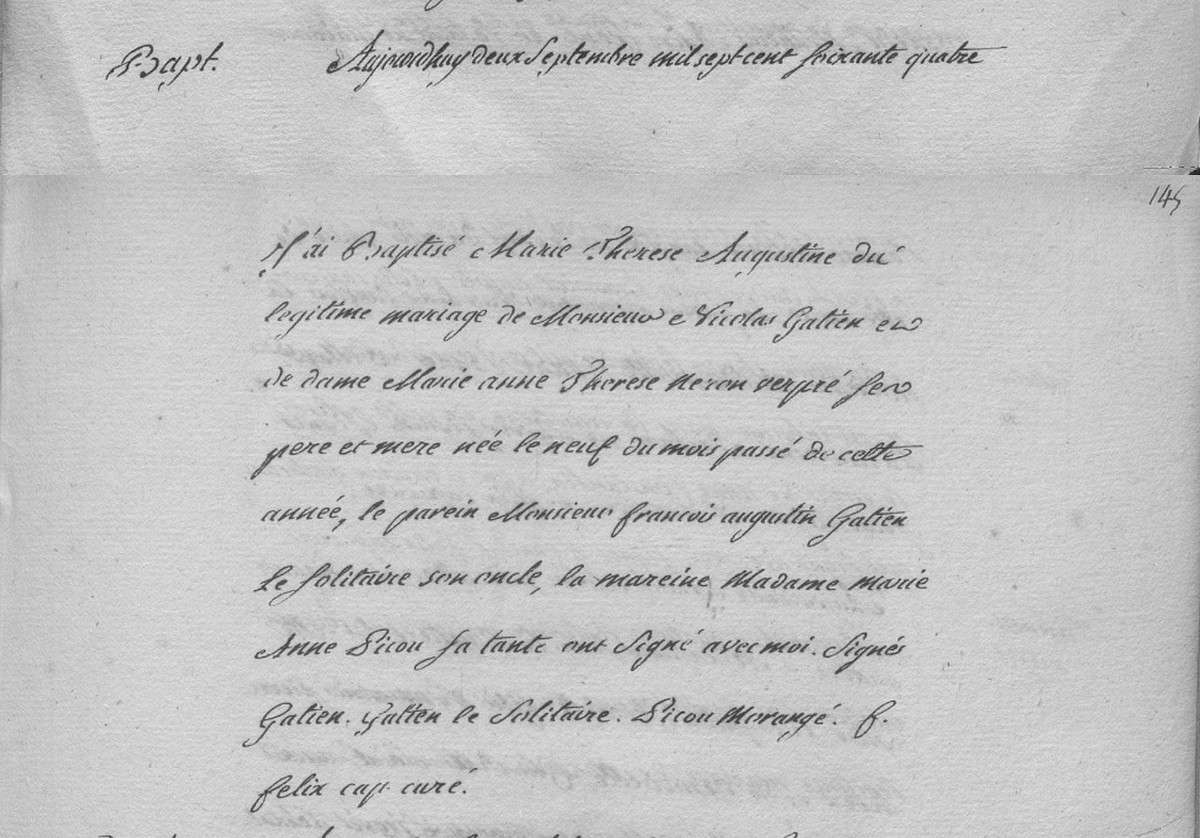 Bapt. Aujourdhuy deux Septembre mil sept cent soixante quatre
145
J'ai Baptisé Marie Therese Augustine du
legitime mariage de Monsieur Nicolas Gatien et
de dame Marie anne Therese Neron verpré ses
pere et mere née le neuf du mois passé de cette
année, le parein Monsieur francois augustin Gatien
Le solitaire son oncle, la mareine Madame Marie
Anne Picou sa tante ont Signé avec moi. Signés
Gatien. Gatien le Solitaire. Picou Morangé. f.
felix cap. curé.